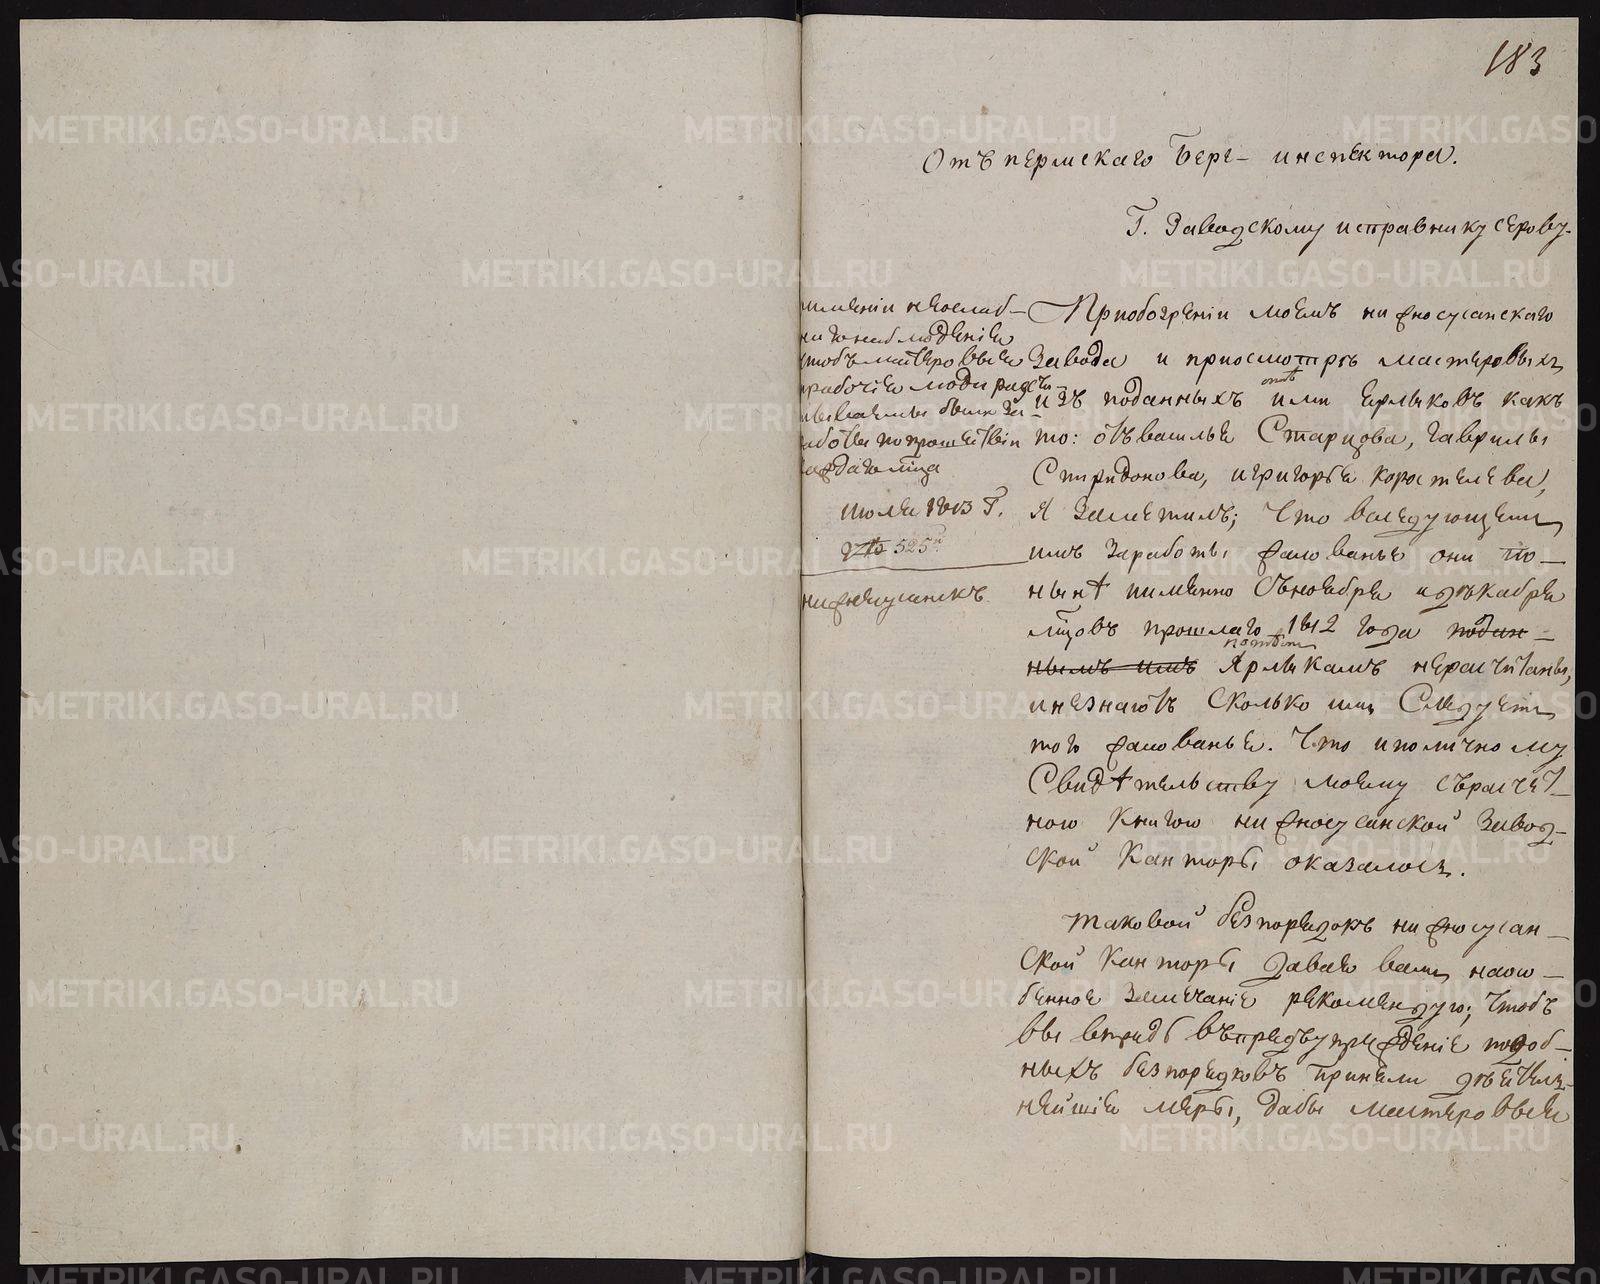 183
Отъ пермскаго Берг- инспектора.
Г. Заводскому исправнику серову.
имѣнiи неослаб-
наго наблюденiя
чтобъ мастеровыя
рабочiя люди расчи-
тываемы были за
работы по прошествiи
каждаго мца
июля 1813 Г.
№ 525й
нижнеусинскъ
При обозренiи моемъ нижносусанскаго
Завода и при осмотре мастеровыхъ
изъ поданныхъ отъ ими ерлыковъ какъ
то: отъ василья Старцова, гаврилы
Спиридонова, и григорья коростелева,
Я Заметилъ; Что вследующемъ
имъ Заработы жалованье они по-
нынѣ имянно Съноября и декабря
мцовъ прошлаго 1812 года подан-
нымъ имъ потемъ Ярлыкамъ нерасчитаны,
инезнаютъ Сколько имъ Следуетъ
того жалованья. Что иполичному
Свидѣтельству моему сърасчет-
ною Книгою нижносусанской Завод-
ской Канторы оказалось.
Таковой безпорядокъ нижносусан-
ской Канторы даваю вамъ наосо-
бенное Замечанiе рекомендую; Чтобъ
вы впредь въпредъупреждение подоб-
ныхъ безпорядковъ приняли деятель-
нейшiя меры, дабы мастеровыя